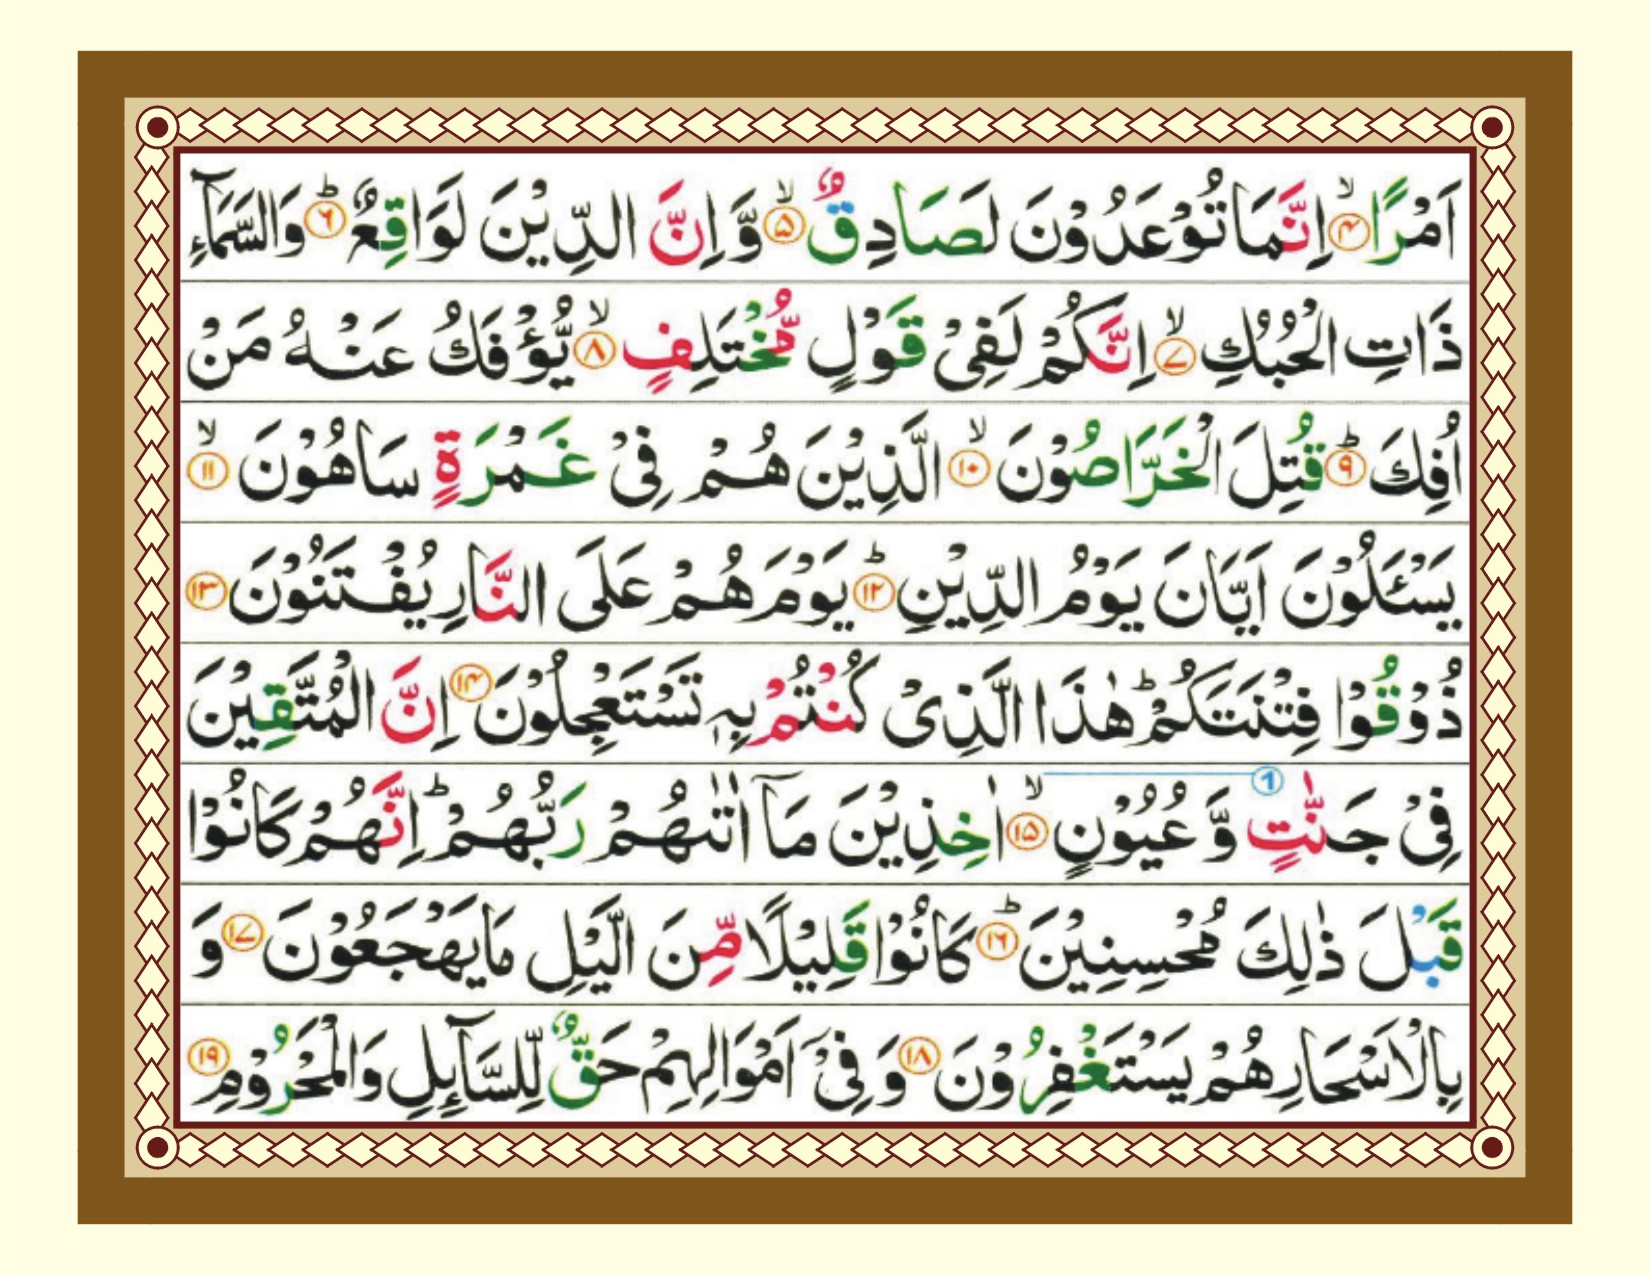 اَمْرًا ۙ﴿۴﴾ اِنَّمَا تُوْعَدُوْنَ لَصَادِقٌ ۙ﴿۵﴾ وَّ اِنَّ الدِّيْنَ لَوَاقِعٌ ؕ﴿۶﴾ وَالسَّمَآءِ
ذَاتِ الْحُبُكِ ۙ﴿۷﴾ اِنَّكُمْ لَفِيْ قَوْلٍ مُّخْتَلِفٍ ۙ﴿۸﴾ يُّؤْفَكُ عَنْهُ مَنْ
اُفِكَ ؕ﴿۹﴾ قُتِلَ الْخَرَّاصُوْنَ ۙ﴿۱۰﴾ الَّذِيْنَ هُمْ فِيْ غَمْرَةٍ سَاهُوْنَ ۙ﴿۱۱﴾
يَسْـَٔلُوْنَ اَيَّانَ يَوْمُ الدِّيْنِ ؕ﴿۱۲﴾ يَوْمَ هُمْ عَلَى النَّارِ يُفْتَنُوْنَ ﴿۱۳﴾
ذُوْقُوْا فِتْنَتَكُمْ ؕ هٰذَا الَّذِىْ كُنْتُمْ بِهٖ تَسْتَعْجِلُوْنَ ﴿۱۴﴾ اِنَّ الْمُتَّقِيْنَ
فِيْ جَنّٰتٍ وَّ عُيُوْنٍ ۙ﴿۱۵﴾ اٰخِذِيْنَ مَاۤ اٰتٰىهُمْ رَبُّهُمْ ؕ اِنَّهُمْ كَانُوْا
قَبْلَ ذٰلِكَ مُحْسِنِيْنَ ؕ﴿۱۶﴾ كَانُوْا قَلِيْلًا مِّنَ الَّيْلِ مَا يَهْجَعُوْنَ ﴿۱۷﴾ وَ
بِالْاَسْحَارِ هُمْ يَسْتَغْفِرُوْنَ ﴿۱۸﴾ وَ فِيْۤ اَمْوَالِهِمْ حَقٌّ لِّلسَّآئِلِ وَالْمَحْرُوْمِ ﴿۱۹﴾